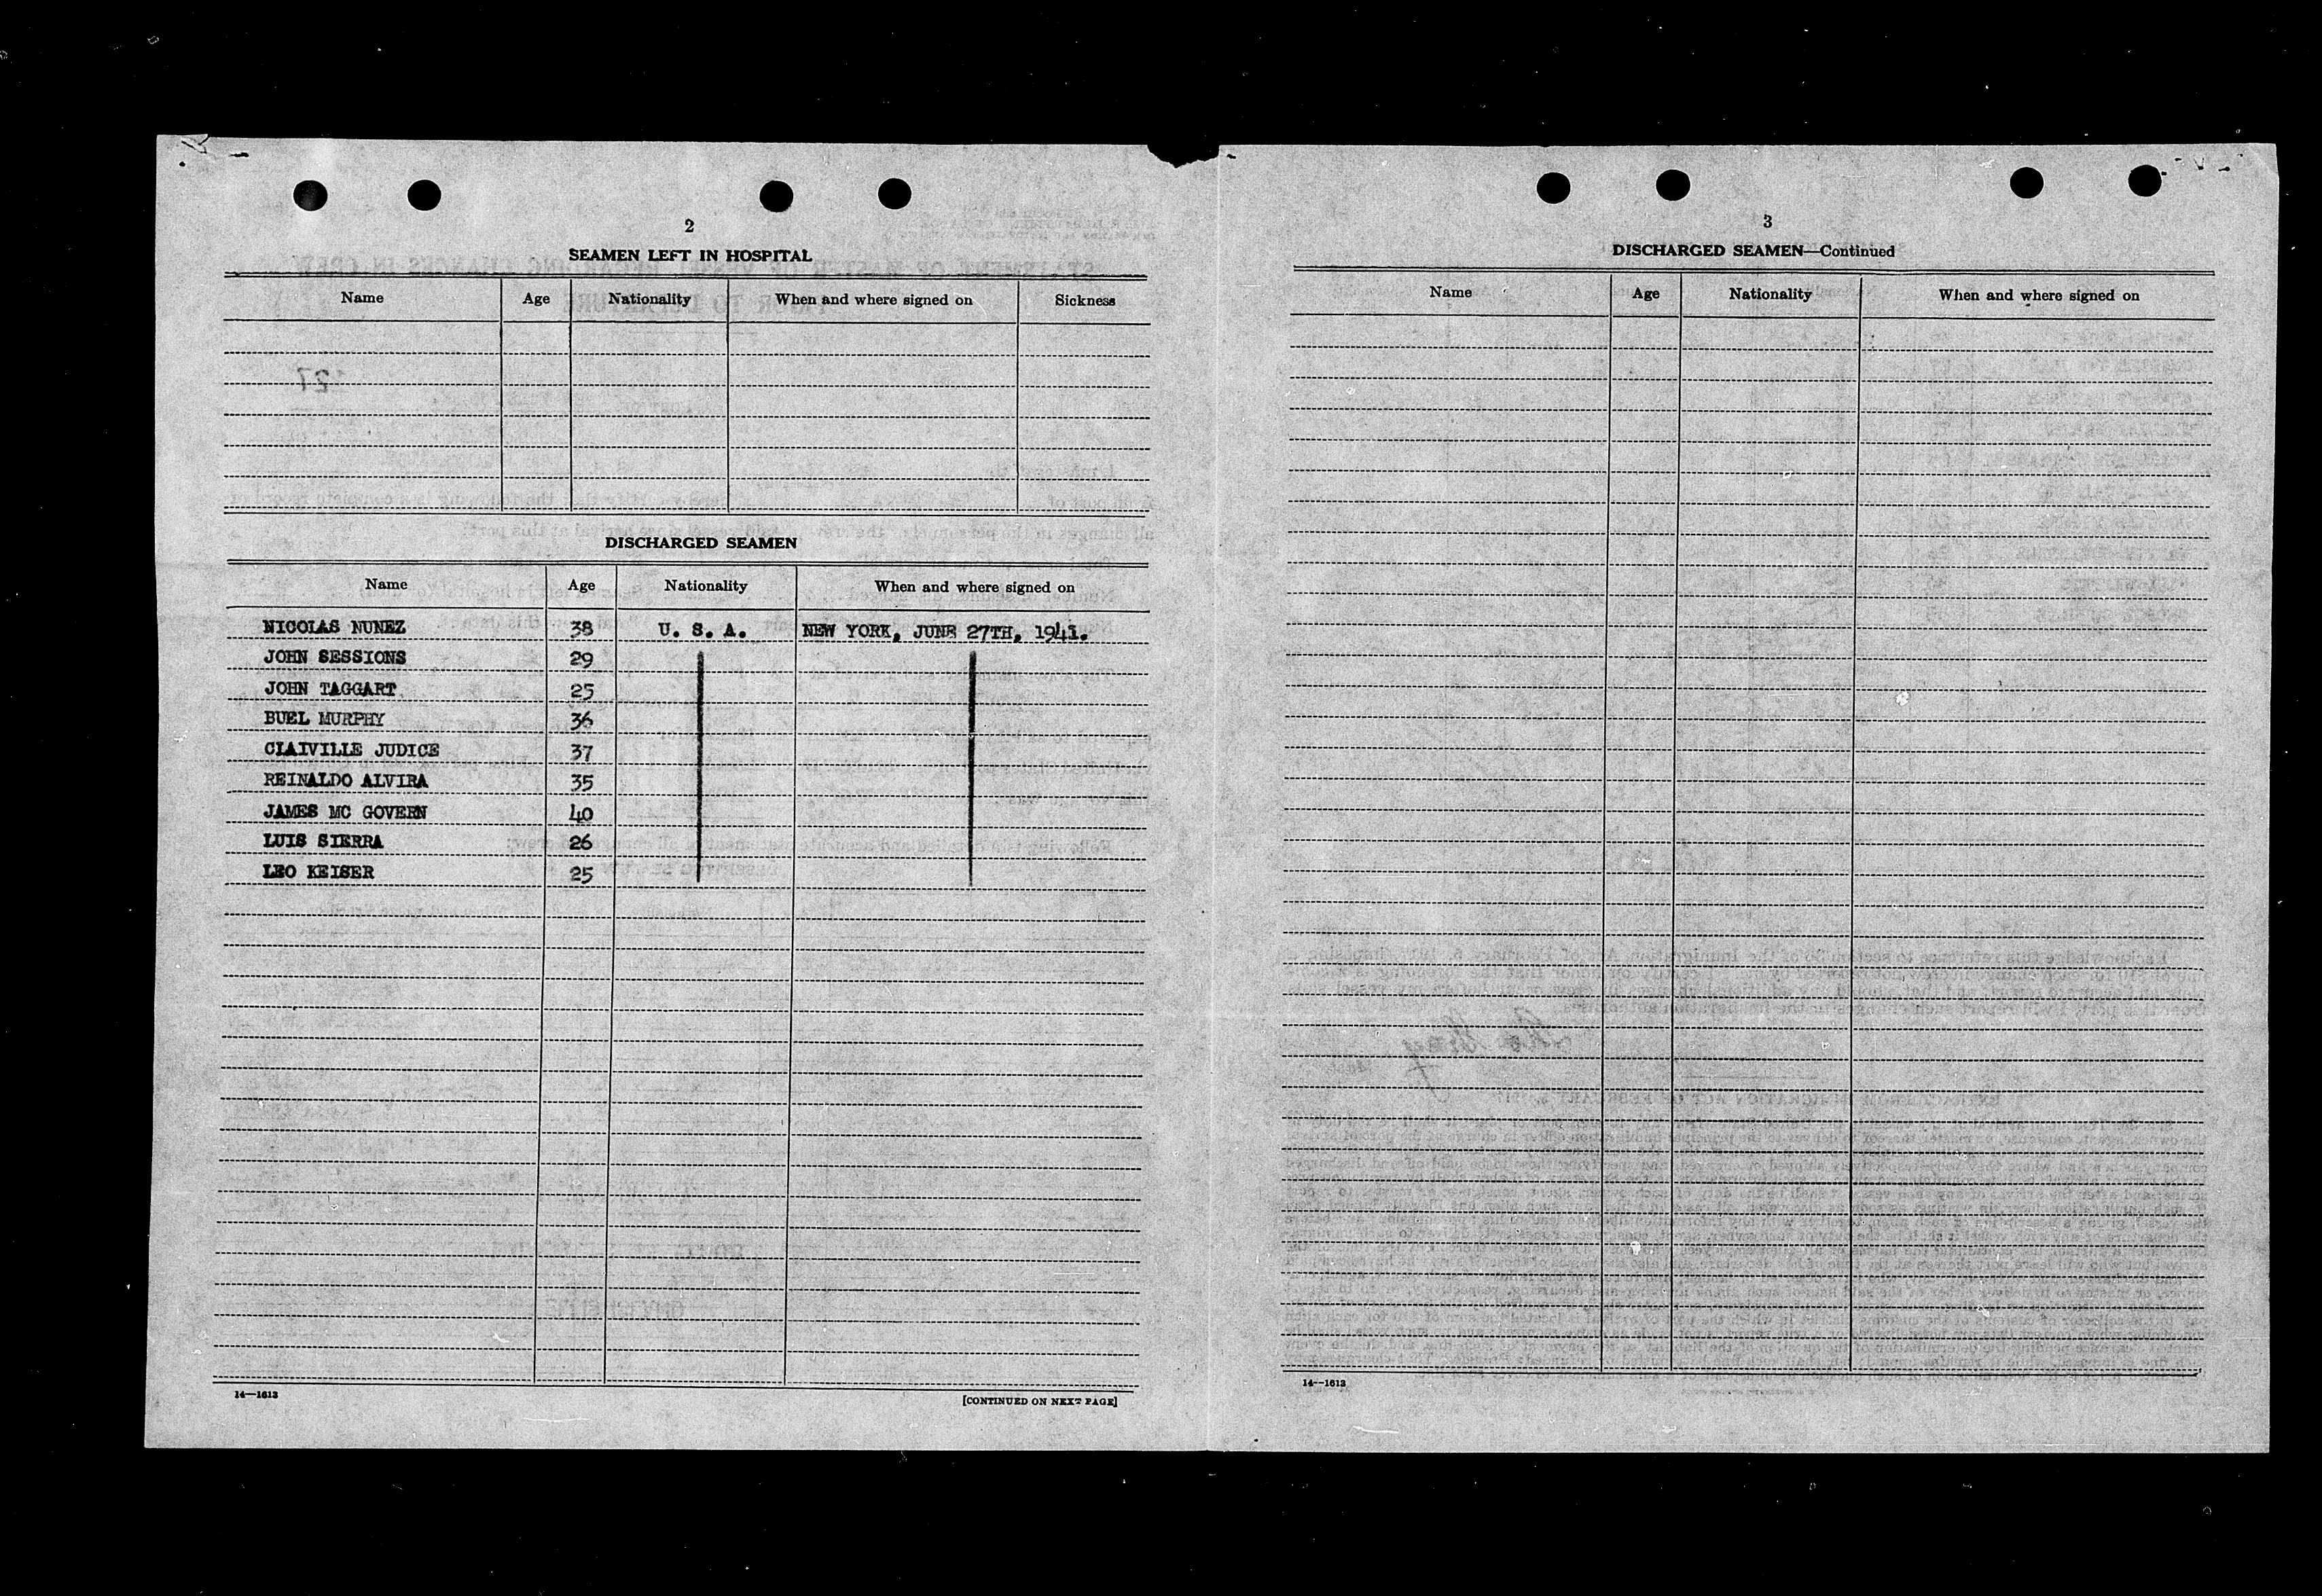 2
SEAMEN LEFT IN HOSPITAL
Name Age Nationality When and where signed on Sickness
DISCHARGED SEAMEN
Name Age Nationality When and where signed on
NICOLAS NUNEZ 38 U. S. A. NEW YORK, JUNE 27TH, 1941.
JOHN SESSIONS 29
JOHN TAGGART 25
BUEL MURPHY 36
CLAIVILLE JUDICE 37
REINALDO ALVIRA 35
JAMES MC GOVERN 40
LUIS SIERRA 26
LEO KEISER 25
14—1613
[CONTINUED ON NEXT PAGE]
3
DISCHARGED SEAMEN—Continued
Name Age Nationality When and where signed on
14—1613